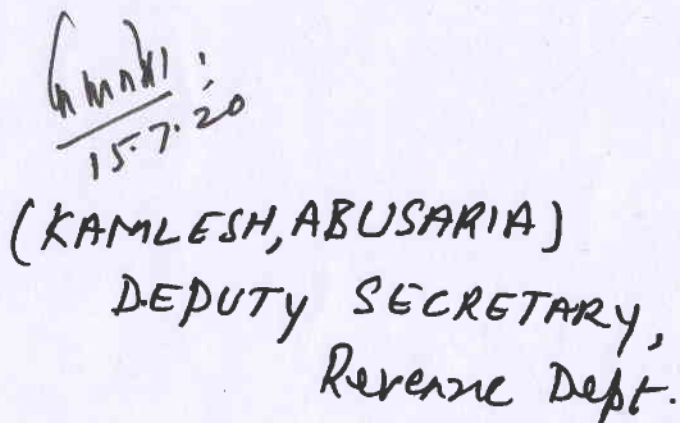 15.7.20
(KAMLESH, ABUSARIA)
DEPUTY SECRETARY,
Revenue Dept.